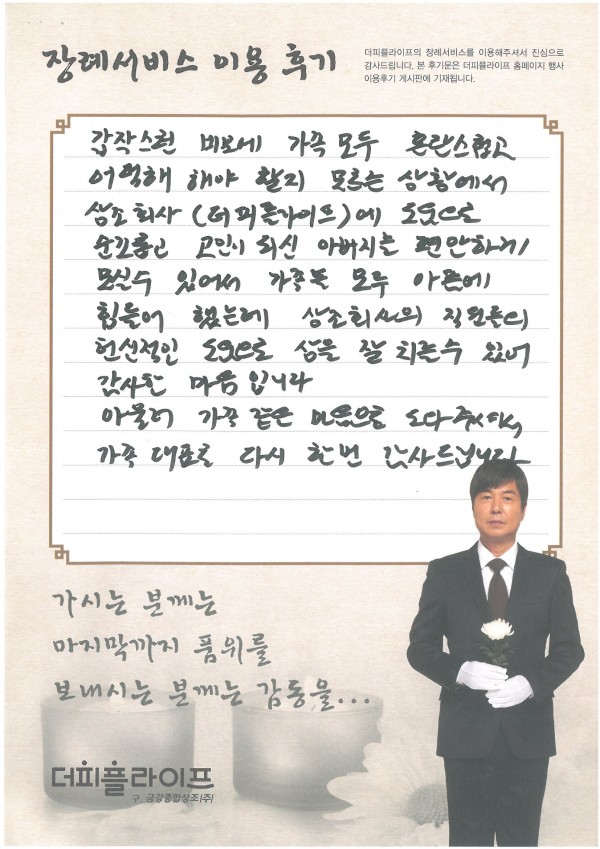 장례서비스 이용 후기
더피플라이프의 장례서비스를 이용해주셔서 진심으로
감사드립니다. 본 후기문은 더피플라이프 홈페이지 행사
이용후기 게시판에 기재됩니다.
갑작스런 비보에 가족 모두 혼란스럽고
어떡해 해야 할지 모르는 상황에서
상조회사 (더피플라이프)에 도움으로
순조롭고 고인이 되신 아버지를 편안하게
모실수 있어서 가족분 모두 아픔에
힘들어 했는데 상조회사의 직원들의
헌신적인 도움으로 상을 잘 치를수 있어
감사한 마음입니다
아울러 가족 같은 마음으로 도와주셔서,
가족 대표로 다시 한번 감사드립니다
가시는 분께는
마지막까지 품위를
보내시는 분께는 감동을...
더피플라이프
구. 금강종합상조(주)